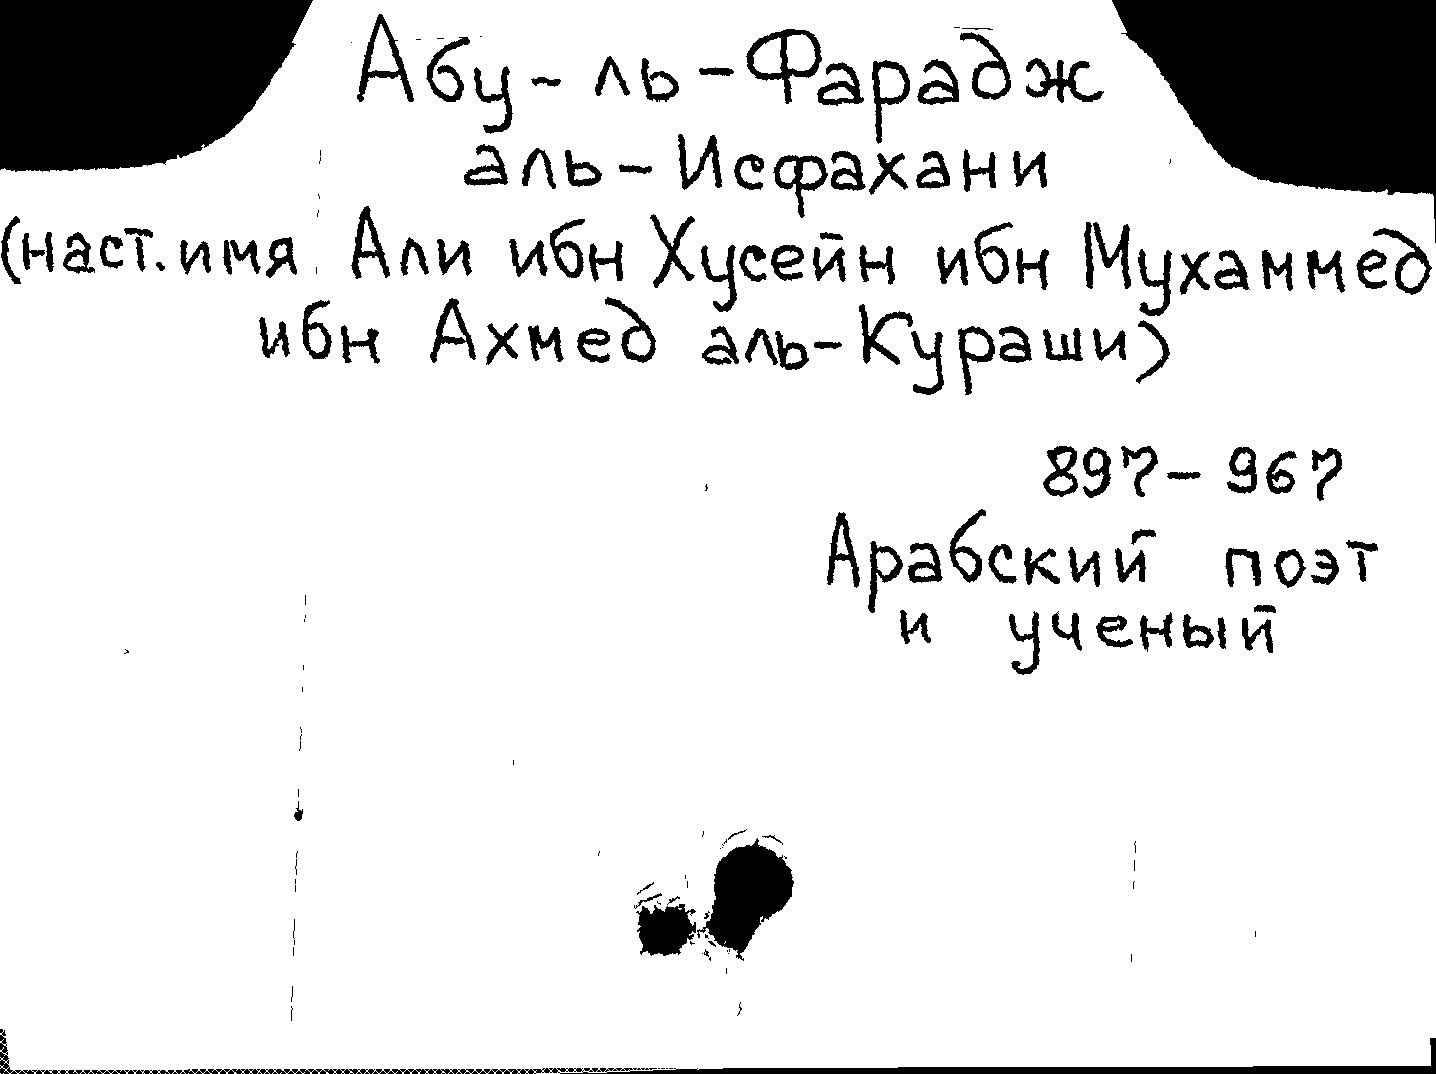 Абу-ль-Фарадж
аль-Исфахани
(наст.имя Али ибн Хусейн ибн Мухаммед
ибн Ахмед аль-Кураши)
897-967
Арабский поэт
и ученый